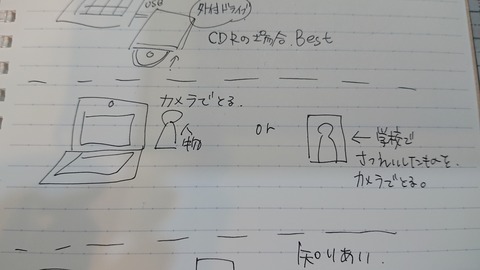 USB
外付ドライブ
CDRの場合、Best
カメラでとる。
人物
or
← 学校で
さつえいしたものを、
カメラでとる。
知りあい